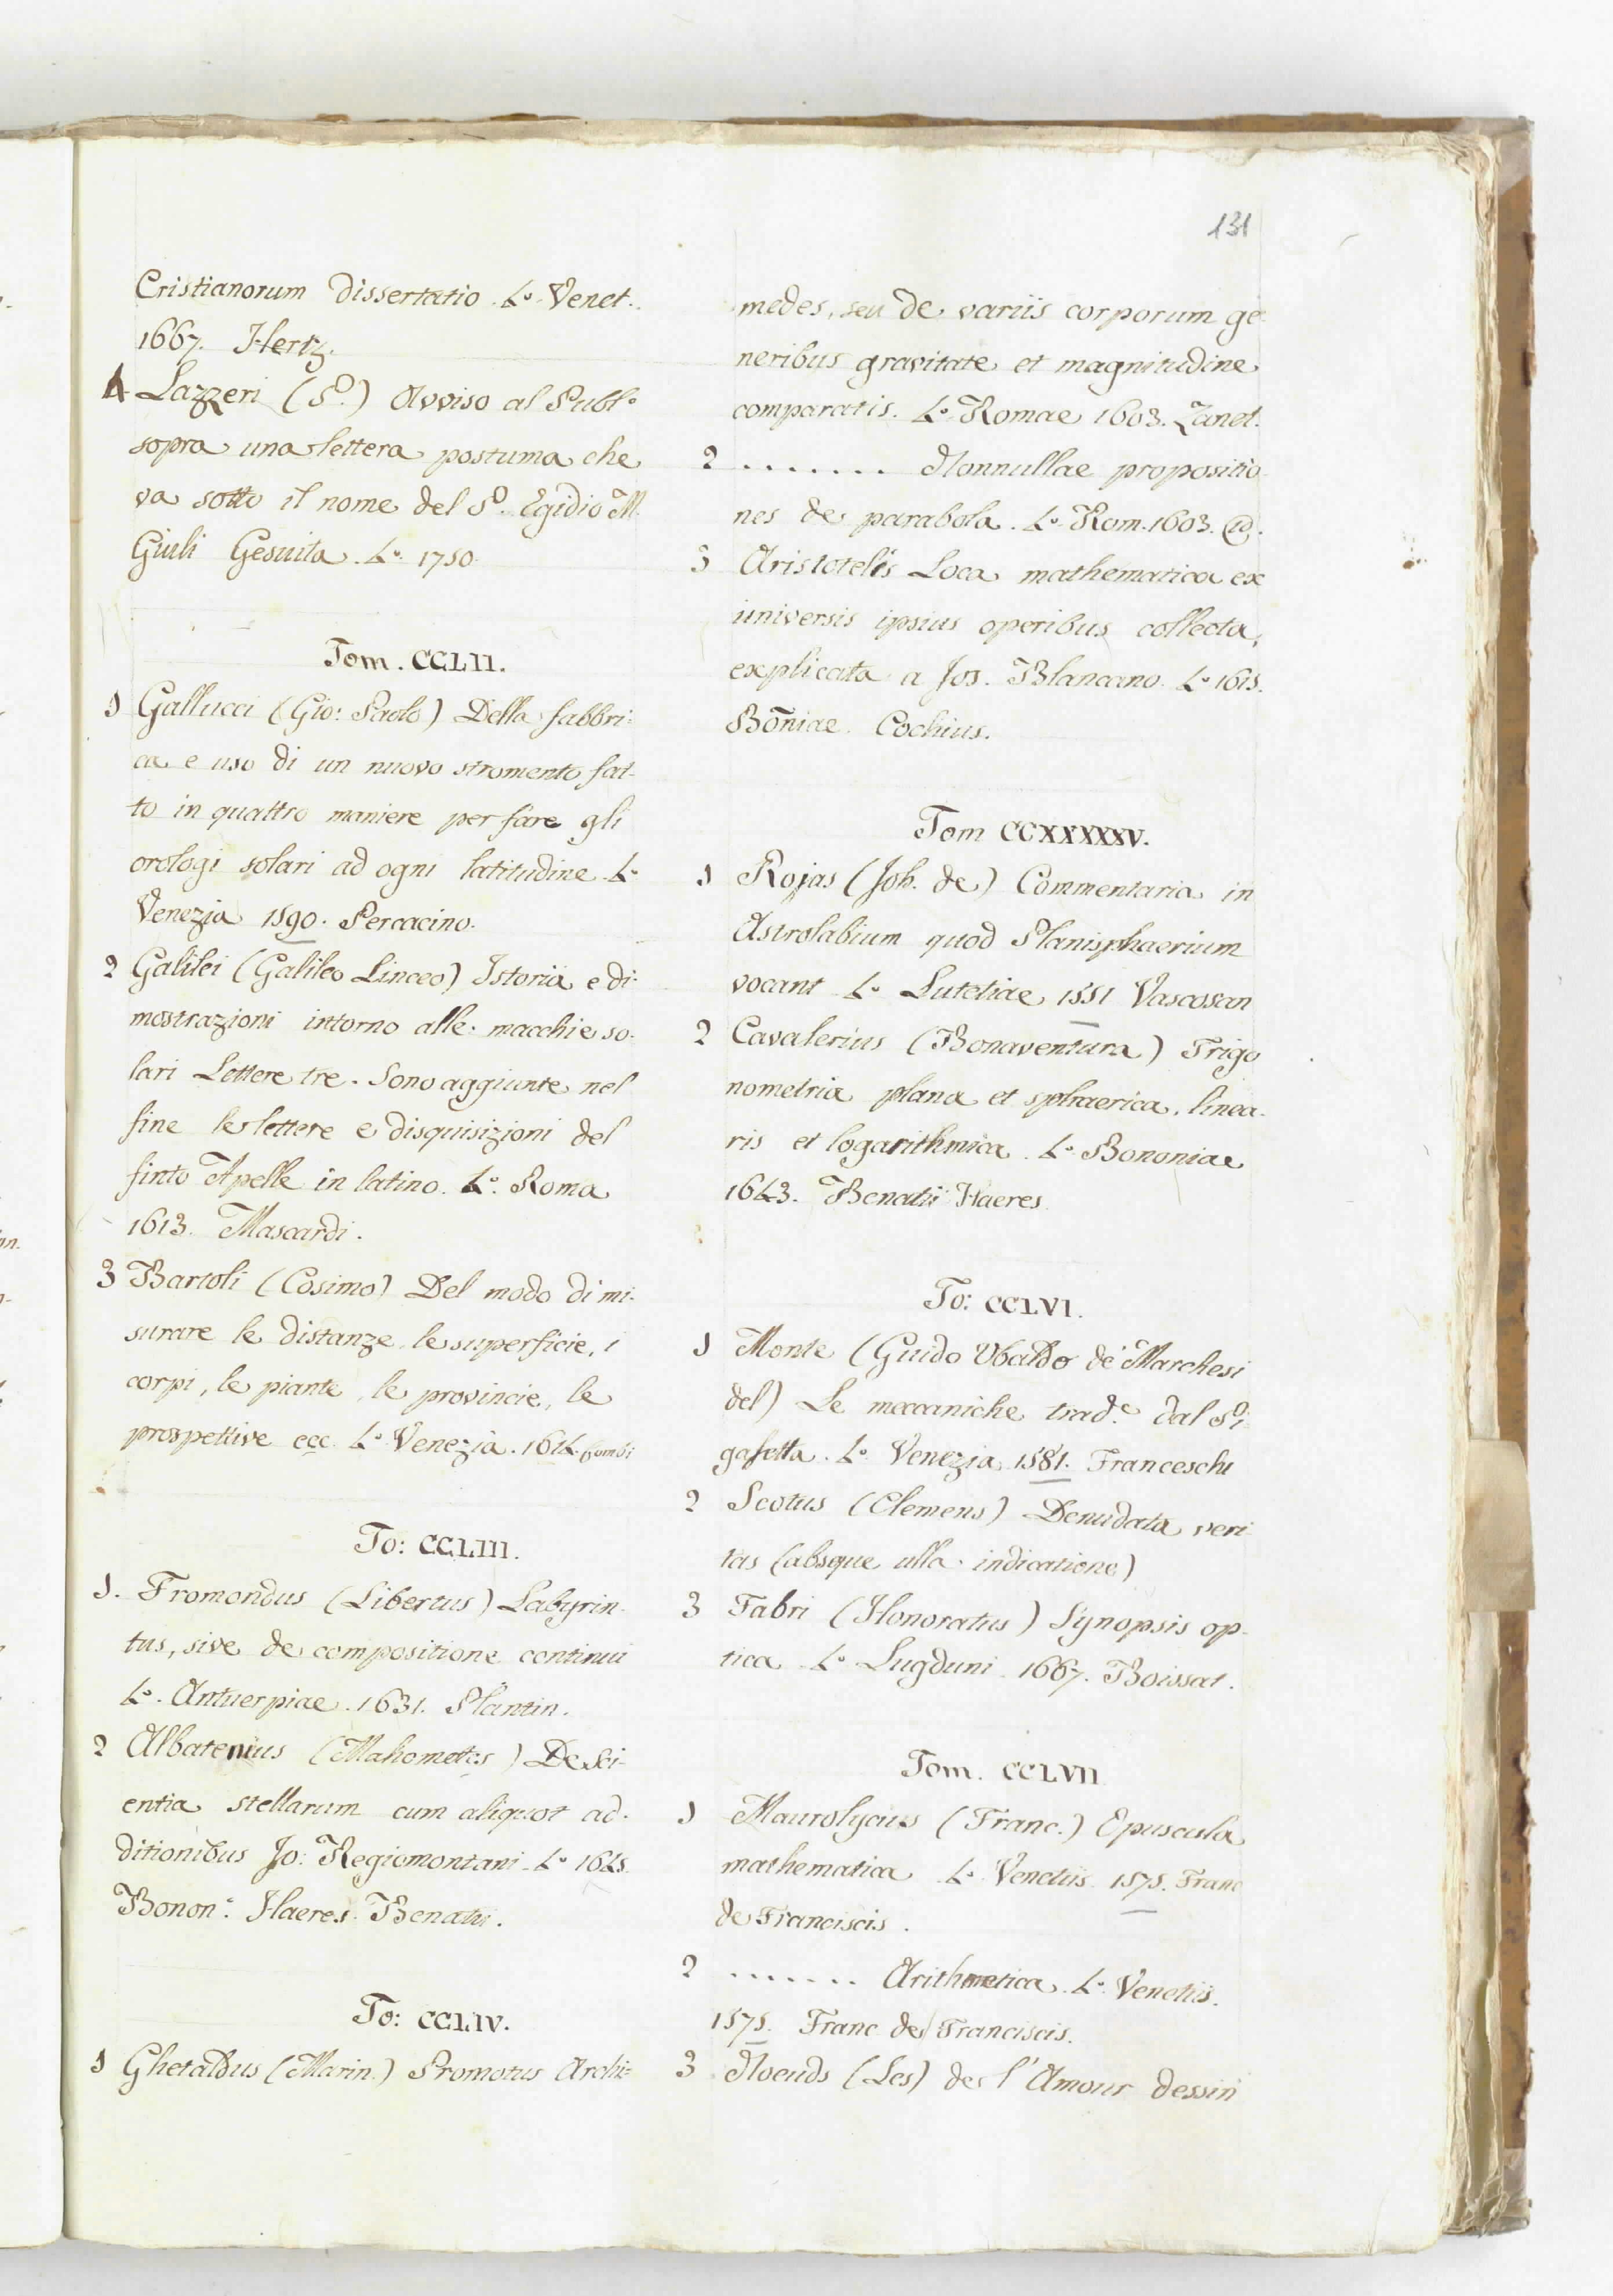 131
Cristianorum dissertatio. 4.º Venet.
1667. Hertz.
4 Lazzeri (P.) Avviso al Publ.º
sopra una lettera postuma che
va sotto il nome del P. Egidio M.
Giuli Gesuita. 4.º 1750.
Tom. CCLII.
1 Gallucci (Gio: Paolo) Della fabbri:
ca e uso di un nuovo stromento fat-
to in quattro maniere per fare gli
orologi solari ad ogni latitudine. 4.º
Venezia 1590. Percacino.
2 Galilei (Galileo Linceo) Istoria e di-
mostrazioni intorno alle macchie so-
lari Lettere tre. Sono aggiunte nel
fine le lettere e disquisizioni del
finto Apelle in latino. 4.º Roma
1613. Mascardi.
3 Bartoli (Cosimo) Del modo di mi-
surare le distanze, le superficie, i
corpi, le piante, le provincie, le
prospettive ecc. 4.º Venezia. 1614.
To: CCLIII.
1. Fromondus (Libertus) Labyrin-
tus, sive de compositione continui
4.º Antuerpiae. 1631. Plantin.
2 Albatenius (Mahometes) De sci-
entia stellarum cum aliquot ad-
ditionibus Jo: Regiomontani. 4.º 1645.
Bonon.ᵉ Haeres. Benatii.
To: CCLIV.
1 Ghetaldus (Marin.) Promotus Archi=
medes, seu de variis corporum ge-
neribus gravitate et magnitudine
comparatis. 4.º Romae 1603. Zanet.
2 ....... Nonnullae propositio
nes de parabola. 4.º Rom. 1603. id.
3 Aristotelis Loca mathematica ex
universis ipsius operibus collecta,
explicata a Jos. Blancano. 4.º 1615.
Bōniae. Cochius.
Tom CCXXXXXV.
1 Rojas (Joh. de) Commentaria in
Astrolabium quod Planisphaerium
vocant 4.º Lutetiae 1551 Vascosan
2 Cavalerius (Bonaventura) Trigo
nometria plana et sphaerica, linea-
ris et logarithmica. 4.º Bononiae
1643. Benatii Haeres
To: CCLVI.
1 Monte (Guido Ubaldo de' Marchesi
del) Le meccaniche trad.e dal Pi
gafetta. 4.º Venezia 1581. Franceschi
2 Scotus (Clemens) Denudata veri
tas (absque ulla indicatione)
3 Fabri (Honoratus) Synopsis op-
tica 4.º Lugduni 1667. Boissat.
Tom. CCLVII
1 Maurolycius (Franc.) Opuscula
mathematica 4.º Venetiis 1575. Franc
de Franciscis.
2 ....... Arithmetica. 4.º Venetiis.
1575. Franc de Franciscis.
3 Noeuds (Les) de l'Amour dessin